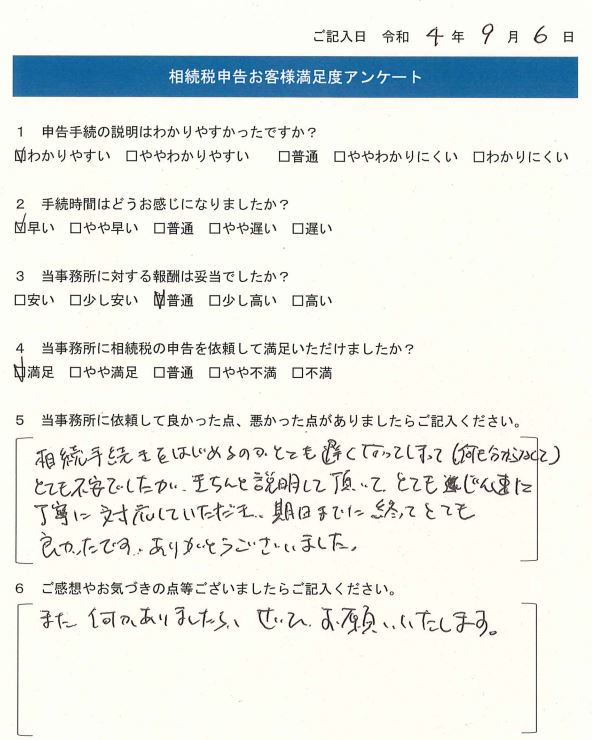 ご記入日 令和 4 年 9 月 6 日
相続税申告お客様満足度アンケート
1 申告手続の説明はわかりやすかったですか？
☑わかりやすい □ややわかりやすい □普通 □ややわかりにくい □わかりにくい
2 手続時間はどうお感じになりましたか？
☑早い □やや早い □普通 □やや遅い □遅い
3 当事務所に対する報酬は妥当でしたか？
□安い □少し安い ☑普通 □少し高い □高い
4 当事務所に相続税の申告を依頼して満足いただけましたか？
☑満足 □やや満足 □普通 □やや不満 □不満
5 当事務所に依頼して良かった点、悪かった点がありましたらご記入ください。
相続手続きをはじめるのがとても遅くなってしまって(何も分からなくて)
とても不安でしたが、きちんと説明して頂いて、とても じん速に
丁寧に対応していただき、期日までに終ってとても
良かったです。ありがとうございました。
6 ご感想やお気づきの点等ございましたらご記入ください。
また何かありましたら、ぜひ、お願いいたします。